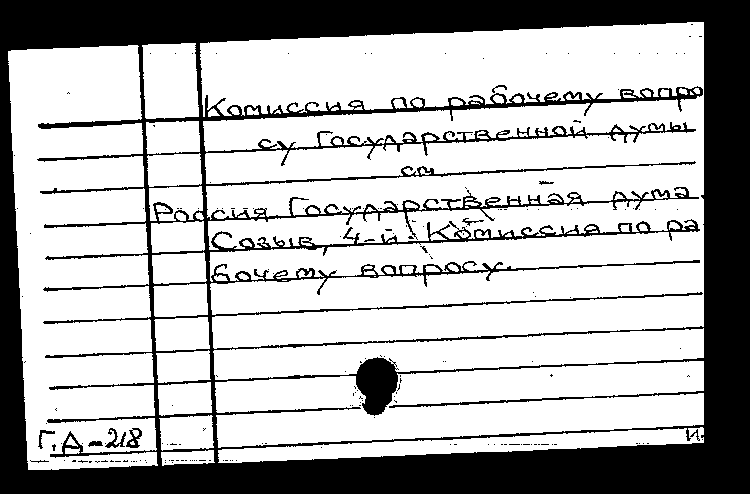 Комиссия по рабочему вопро
су Государственной думы
см
Россия. Государственная дума.
Созыв, 4-й. Комиссия по ра
бочему вопросу.
Г.Д-218
И.